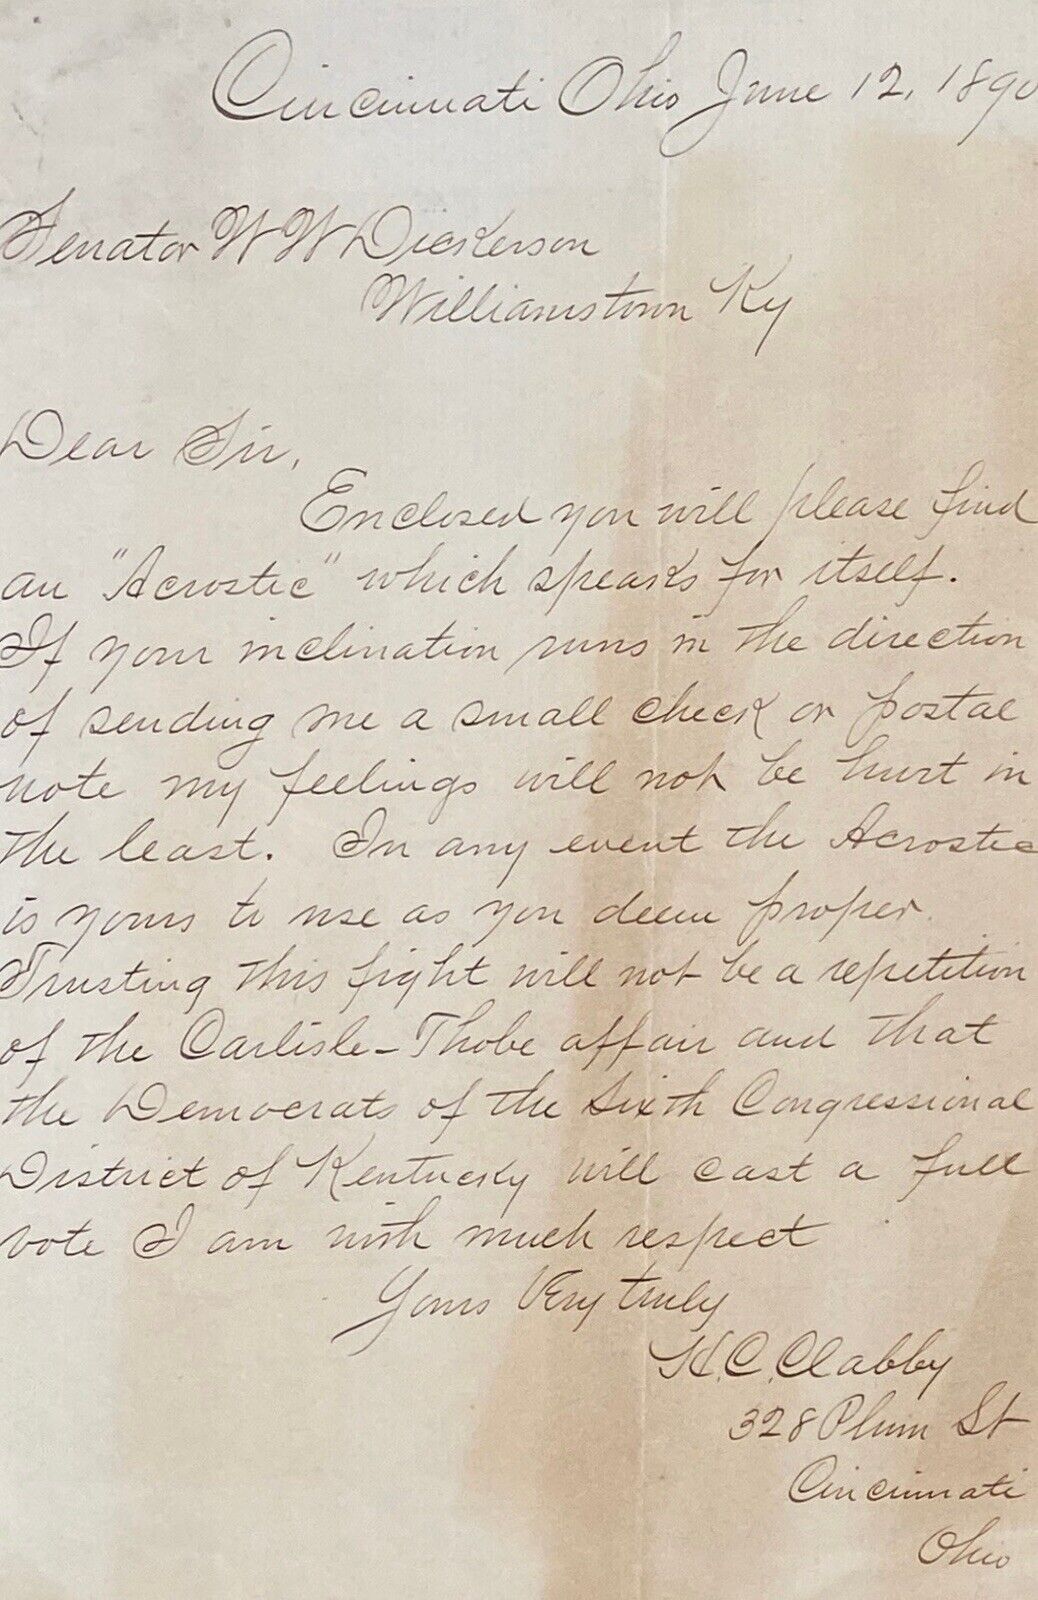 Cincinnati Ohio June 12, 1890
Senator W W Dickerson
Williamstown Ky
Dear Sir,
Enclosed you will please find
an "Acrostic" which speaks for itself.
If your inclination runs in the direction
of sending me a small check or postal
note my feelings will not be hurt in
the least. In any event the Acrostic
is yours to use as you deem proper.
Trusting this fight will not be a repetition
of the Carlisle-Thobe affair and that
the Democrats of the Sixth Congressional
District of Kentucky will cast a full
vote I am with much respect
Yours Very truly
H. C. Clabby
328 Plum St
Cincinnati
Ohio